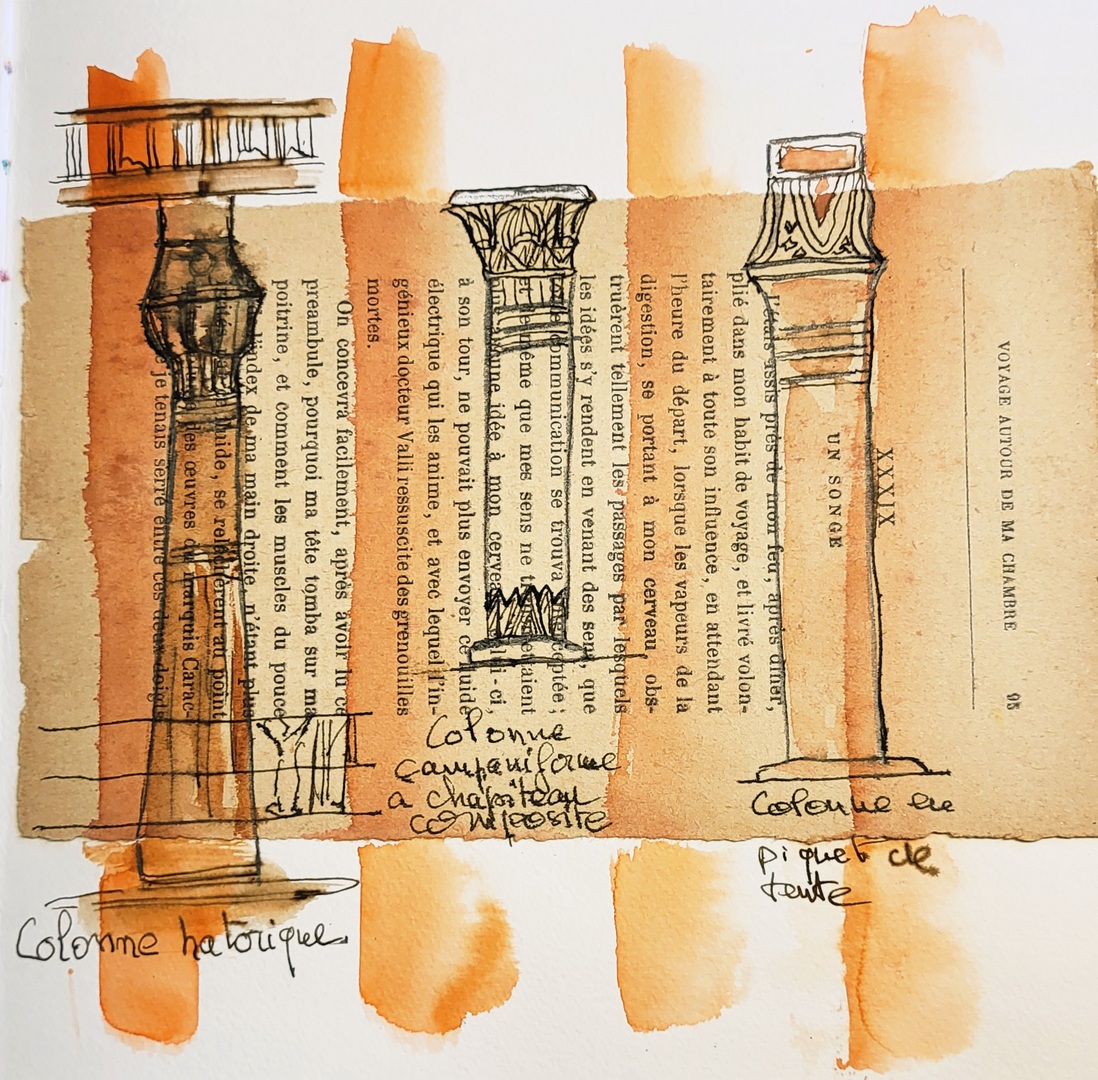 VOYAGE AUTOUR DE MA CHAMBRE 95
XXXIX
UN SONGE
J'étais assis près de mon feu, après dîner,
plié dans mon habit de voyage, et livré volon-
tairement à toute son influence, en attendant
l'heure du départ, lorsque les vapeurs de la
digestion, se portant à mon cerveau, obs-
truèrent tellement les passages par lesquels
les idées s'y rendent en venant des sens, que
communication se trouva
et de même que mes sens ne
idée à mon cerveau
à son tour, ne pouvait plus envoyer ce fluide
électrique qui les anime, et avec lequel l'in-
génieux docteur Valli ressuscite des grenouilles
mortes.
On concevra facilement, après avoir lu ce
preambule, pourquoi ma tête tomba sur ma
poitrine, et comment les muscles du pouce
l'index de ma main droite, n'étant plus
se relâchèrent au point
les œuvres du marquis Carac-
je tenais serré entre ces deux doigts
Colonne hatorique
Colonne
campaniforme
a chapiteau
composite
Colonne en
piquet de
tente